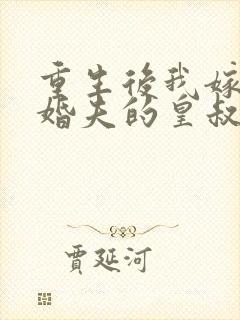 重生後我嫁
婚夫的皇叔
賈延河